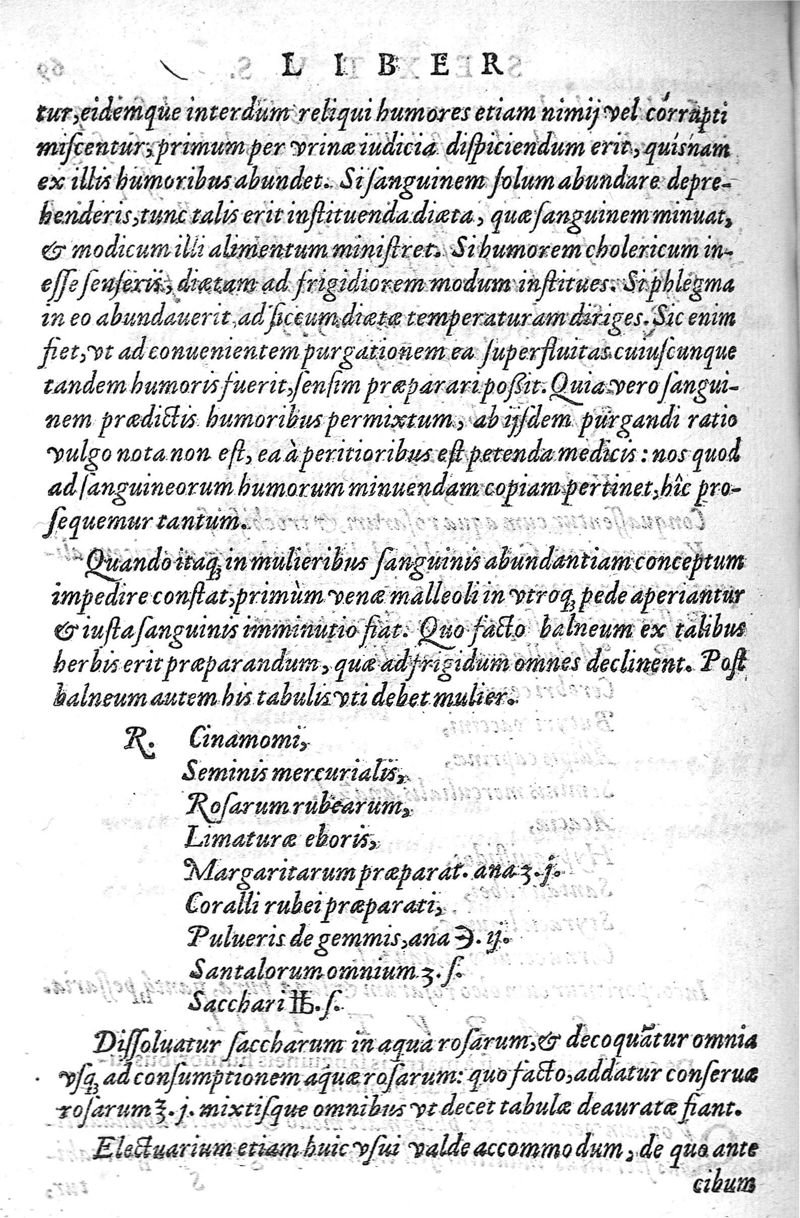 LIBER
tur, eidemque interdum reliqui humores etiam nimij vel corrupti
miscentur, primum per vrinæ iudicia dispiciendum erit, quisnam
ex illis humoribus abundet. Si sanguinem solum abundare depre-
henderis, tunc talis erit instituenda diæta, quæ sanguinem minuat,
& modicum illi alimentum ministret. Si humorem cholericum in-
esse senseris, diætam ad frigidiorem modum institues. Si phlegma
in eo abundauerit, ad siccum diætæ temperaturam diriges. Sic enim
fiet, vt ad conuenientem purgationem ea superfluitas cuiuscunque
tandem humoris fuerit, sensim præparari poßit. Quia vero sangui-
nem prædictis humoribus permixtum, ab ijsdem purgandi ratio
vulgo nota non est, ea à peritioribus est petenda medicis: nos quod
ad sanguineorum humorum minuendam copiam pertinet, hîc pro-
sequemur tantum.
Quando itaq; in mulieribus sanguinis abundantiam conceptum
impedire constat, primùm venæ malleoli in vtroq; pede aperiantur
& iusta sanguinis imminutio fiat. Quo facto balneum ex talibus
herbis erit præparandum, quæ ad frigidum omnes declinent. Post
balneum autem his tabulis vti debet mulier.
R. Cinamomi,
Seminis mercurialis,
Rosarum rubearum,
Limaturæ eboris,
Margaritarum præparat. ana ʒ. j.
Coralli rubei præparati,
Pulueris de gemmis, ana ℈. ij.
Santalorum omnium ʒ. ſ.
Sacchari ℔. ſ.
Dissoluatur saccharum in aqua rosarum, & decoquātur omnia
vsq; ad consumptionem aquæ rosarum: quo facto, addatur conseruæ
rosarum ℥. j. mixtisque omnibus vt decet tabulæ deauratæ fiant.
Electuarium etiam huic vsui valde accommodum, de quo ante
cibum